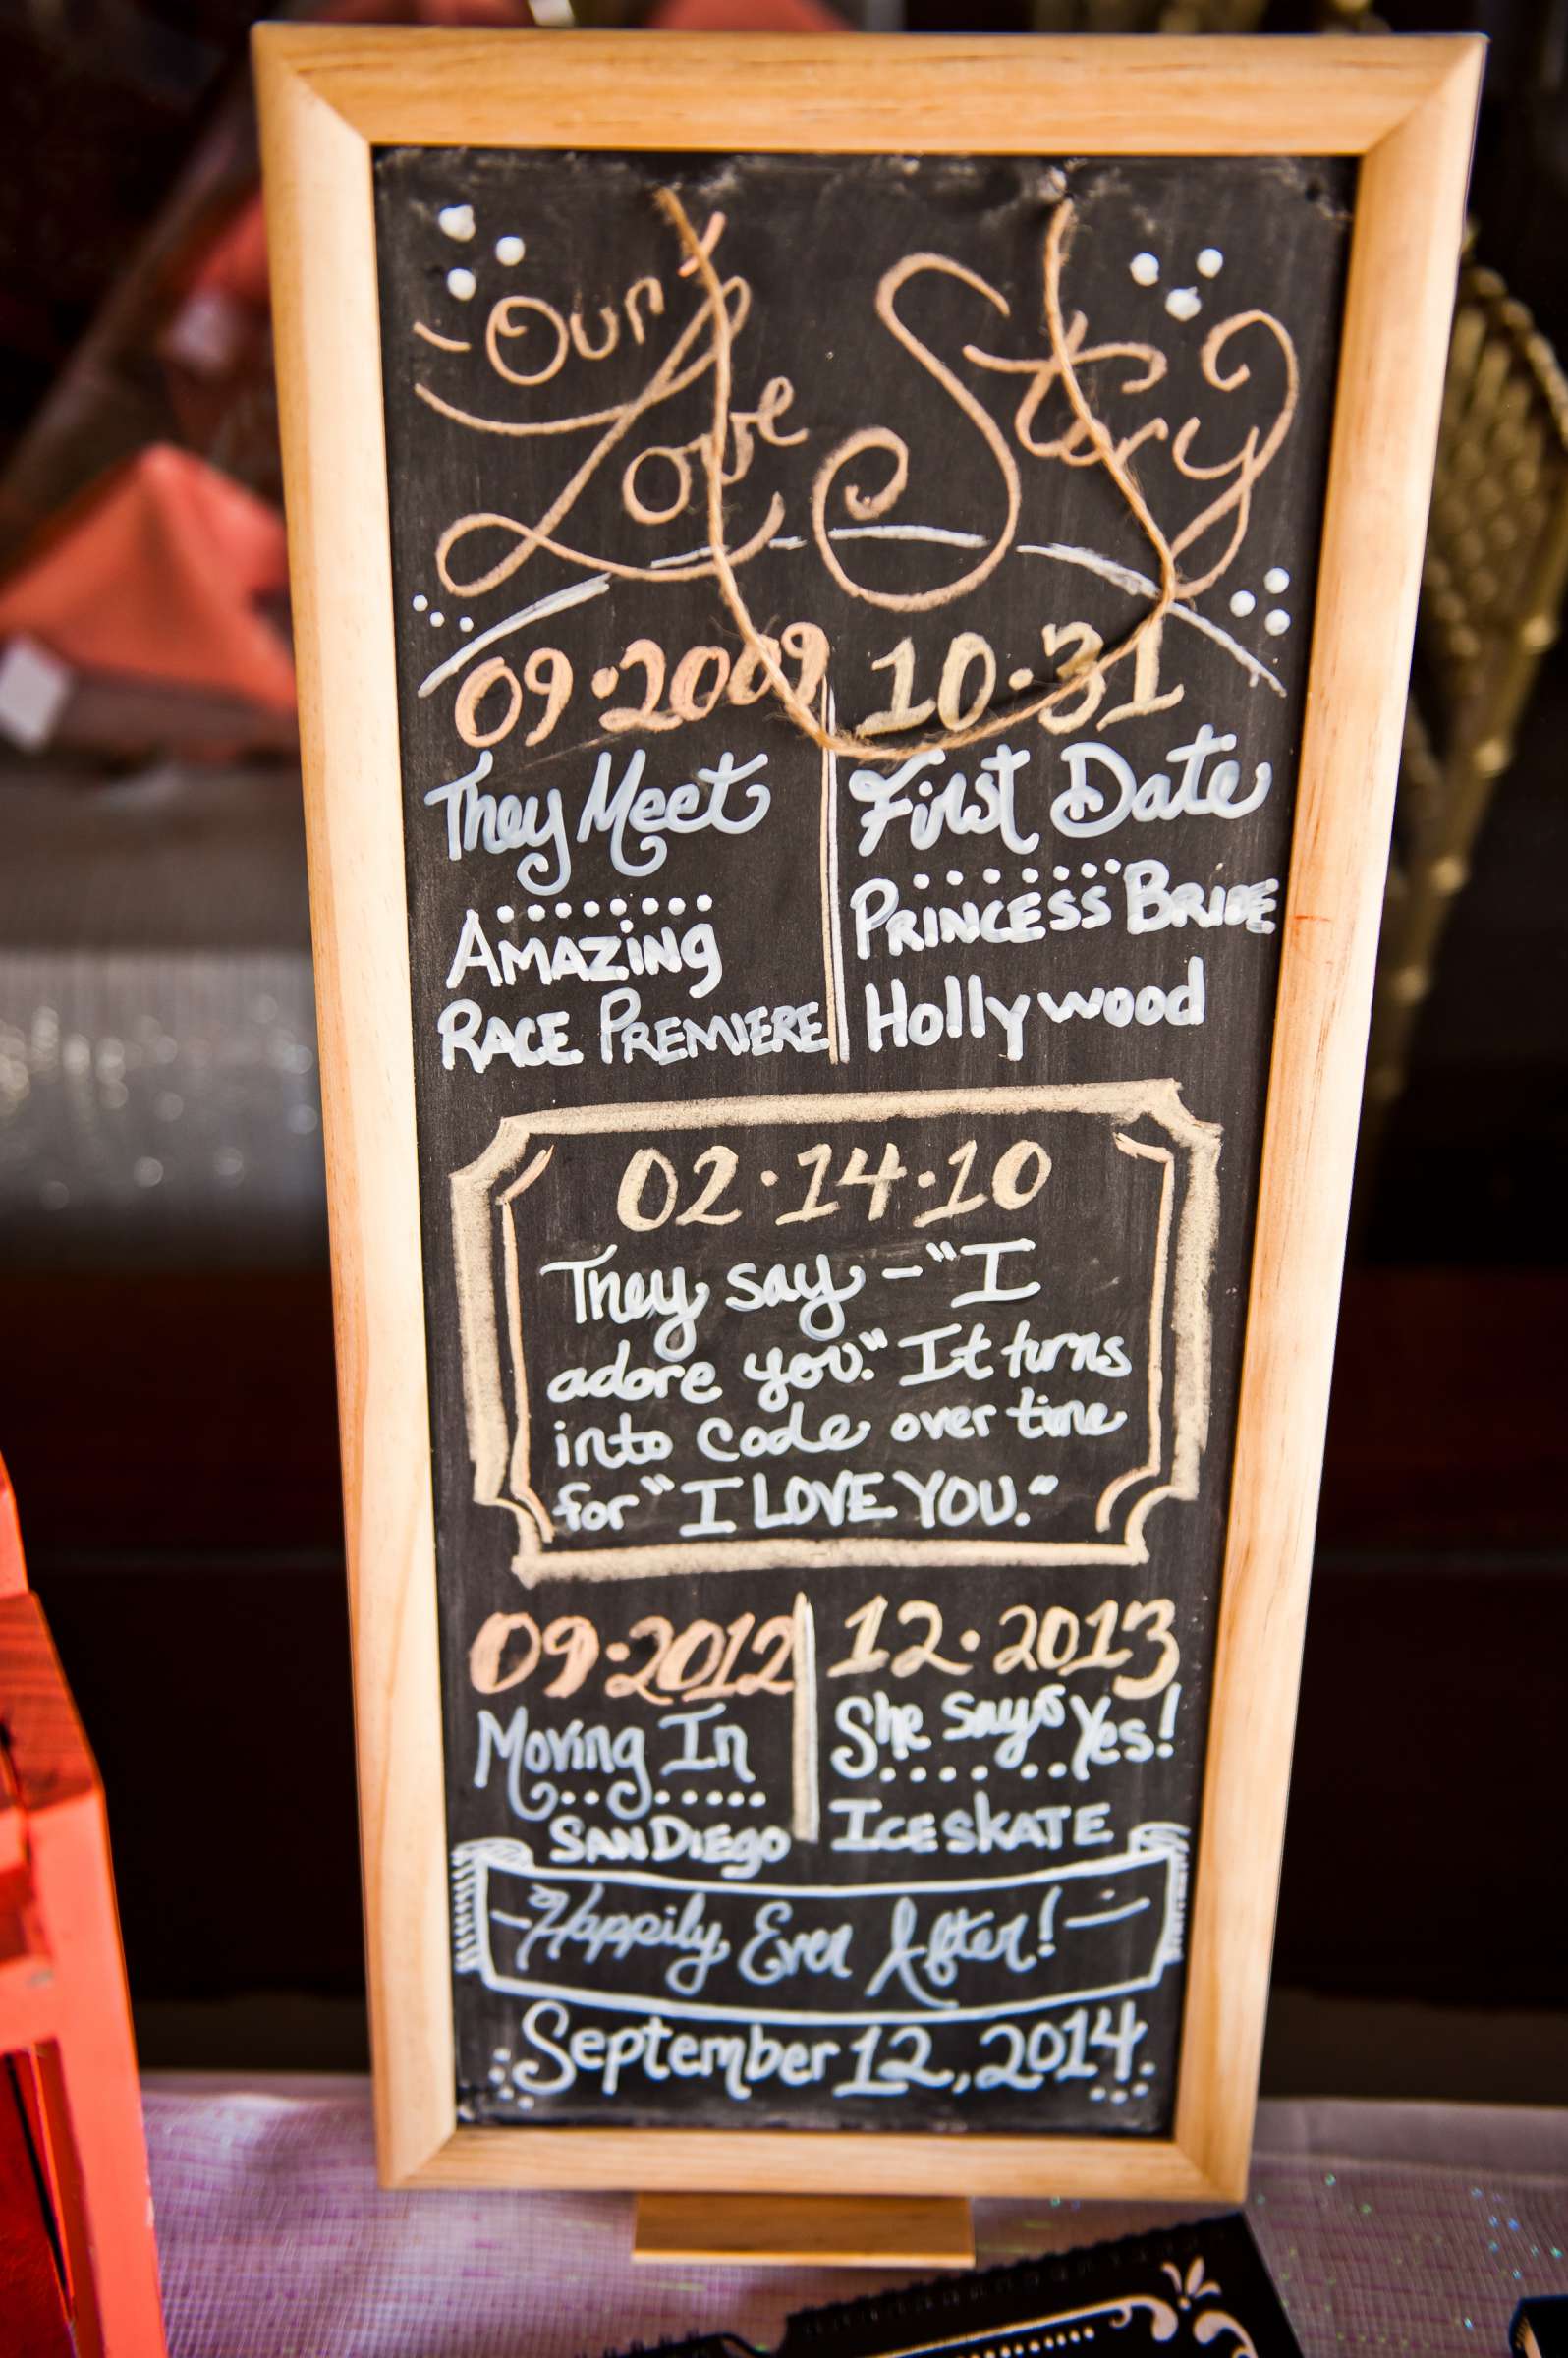 Our Love Story
09·2009
They Meet
AMAZING
RACE PREMIERE
10·31
First Date
PRINCESS BRIDE
Hollywood
02·14·10
They say - "I
adore you." It turns
into code over time
for "I LOVE YOU."
09·2012
Moving In
SAN DIEGO
12·2013
She says Yes!
ICE SKATE
-Happily Ever After!-
September 12, 2014